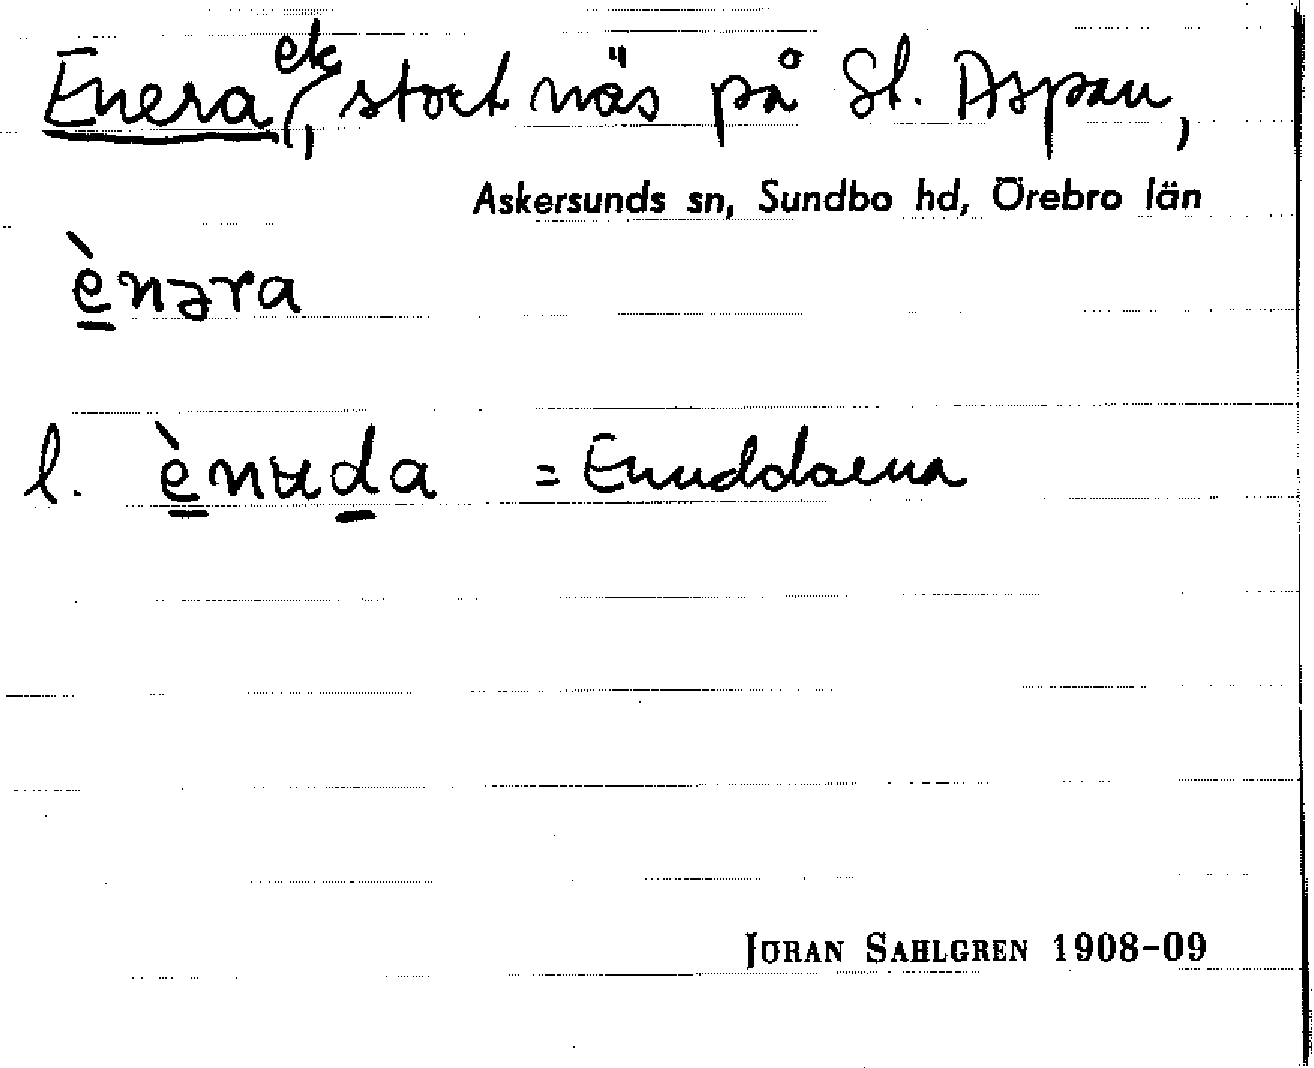 Enera ek, stort näs på St. Aspan,
Askersunds sn, Sundbo hd, Örebro län
ènəra
l. ènʉda = Enuddarna
JÖRAN SAHLGREN 1908-09